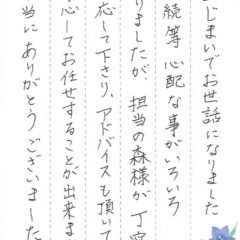 じまいでお世話になりました
続等 心配な事がいろいろ
りましたが、担当の森様が丁寧
応して下さり、アドバイスも頂いて
心してお任せすることが出来ま
当にありがとうございました